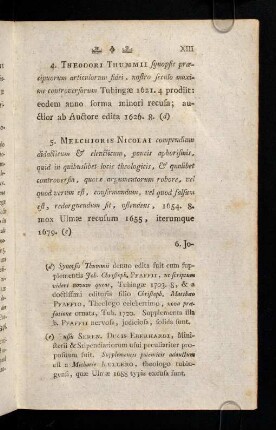 XIII
4. THEODORI THUMMII synopsis præ-
cipuorum articulorum fidei, nostro seculo maxi-
me controversorum Tubingæ 1621. 4 prodiit:
eodem anno forma minori recusa; au-
ctior ab Auctore edita 1626. 8. (d)
5. MELCHIORIS NICOLAI compendium
didacticum & elencticum, paucis aphorismis,
quid in quibuslibet locis theologicis, & qualibet
controversia, quove argumentorum robore, vel
quod verum est, confirmandum, vel quod falsum
est, redarguendum sit, ostendens, 1654. 8.
mox Ulmæ recusum 1655, iterumque
1679. (e)
6. Jo-
(d) Synopsis Thummii denuo edita fuit cum sup-
plementis Joh. Christoph. PFAFFII, ut scriptum
videre novum queas, Tubingæ 1703. 8, & a
doctissimi editoris filio Christoph. Matthæo
PFAFFIO, Theologo celeberrimo, nova præ-
fatione ornata, Tub. 1720. Supplementa illa
B. PFAFFII nervosa, judiciosa, solida sunt.
(e) Jussu SEREN. DUCIS EBERHARDI, Mini-
sterii & Stipendiariorum usui peculiariter pro-
positum fuit. Supplementis polemicis adauctum
est a Mechovio KELLERO, theologo tubin-
gensi, quæ Ulmæ 1688 typis excusa sunt.